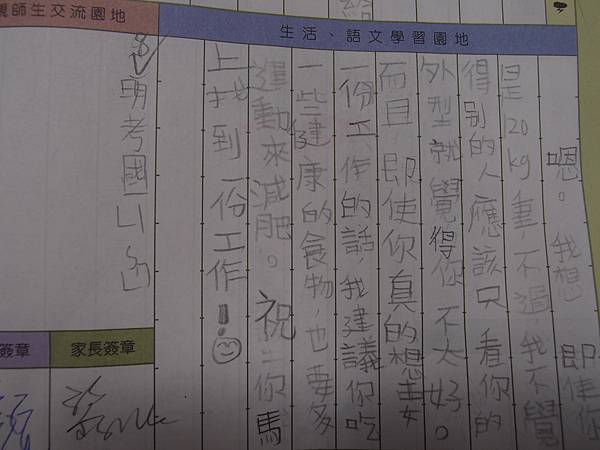 親師生交流園地
生活、語文學習園地
給
嗯。我想即使你
是120kg重,不過我不覺
得別的人應該只看你的
外型就覺得你不太好。
而且,即使你真的想要
一份工作的話,我建議你吃
一些健康的食物,也要多
運動來減肥。祝你馬
上找到一份工作!
8
明考國
簽章
家長簽章